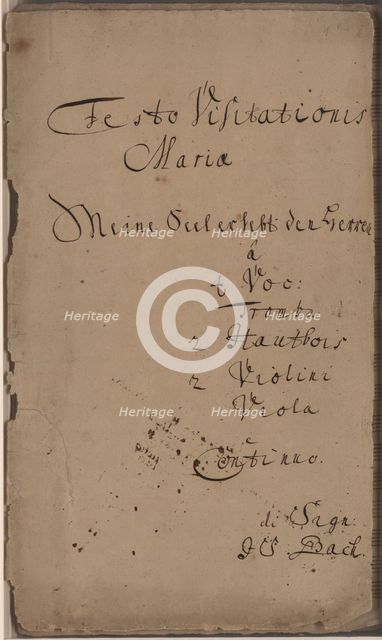 Festo Visitationis
Mariæ
Meine Seel erhebt den Herren
â
4 Voc:
Tromb.
2 Hautbois
2 Violini
Viola
e
Continuo.
di Sign:
JS. Bach.
Heritage
Heritage
Heritage
Heritage
Heritage
Heritage
Heritage
Heritage
Heritage
©